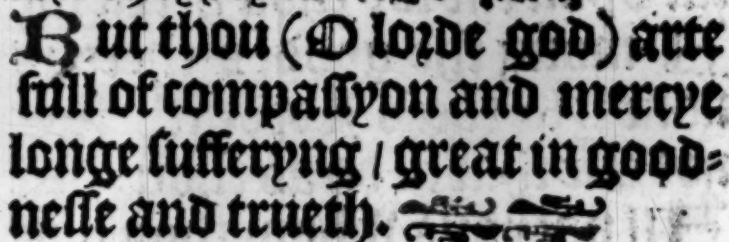 But thou (O lorde god) arte
full of compassyon and mercye
longe sufferyng / great in good-
nesse and trueth.